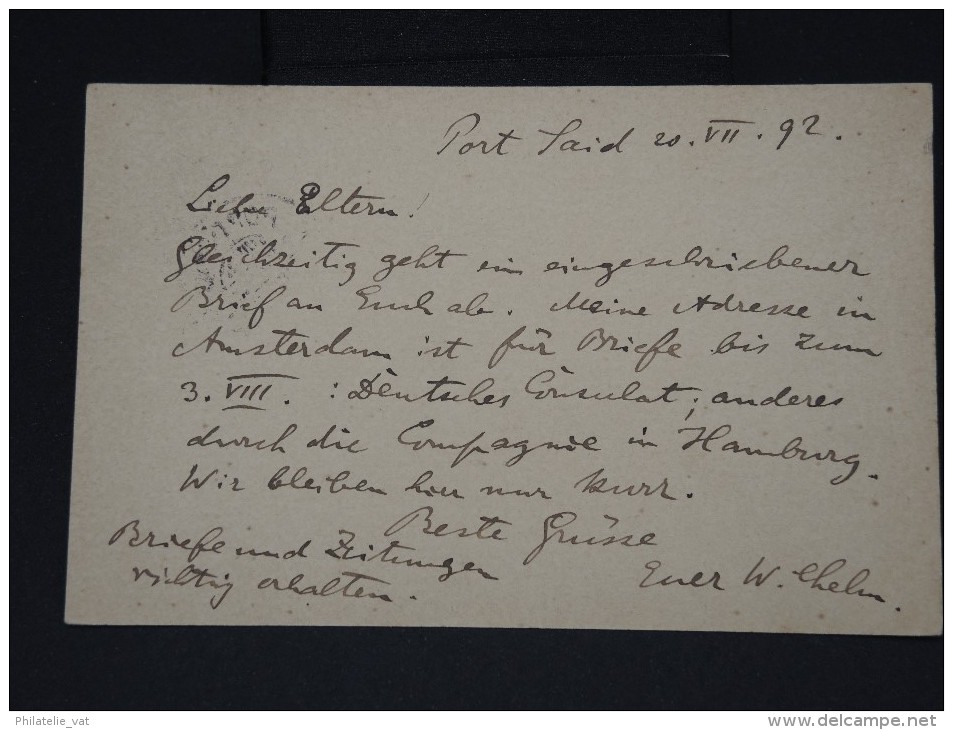 Port Said 20. VII. 92.
Liebe Eltern!
Gleichzeitig geht ein eingeschriebener
Brief an Euch ab. Meine Adresse in
Amsterdam ist für Briefe bis zum
3. VIII. : Deutsches Consulat; anderes
durch die Compagnie in Hamburg.
Wir bleiben hier nur kurz.
Beste Grüsse
Euer Wilhelm.
Briefe und Zeitungen
richtig erhalten.
Philatelie_vat
http://www.delcampe.net